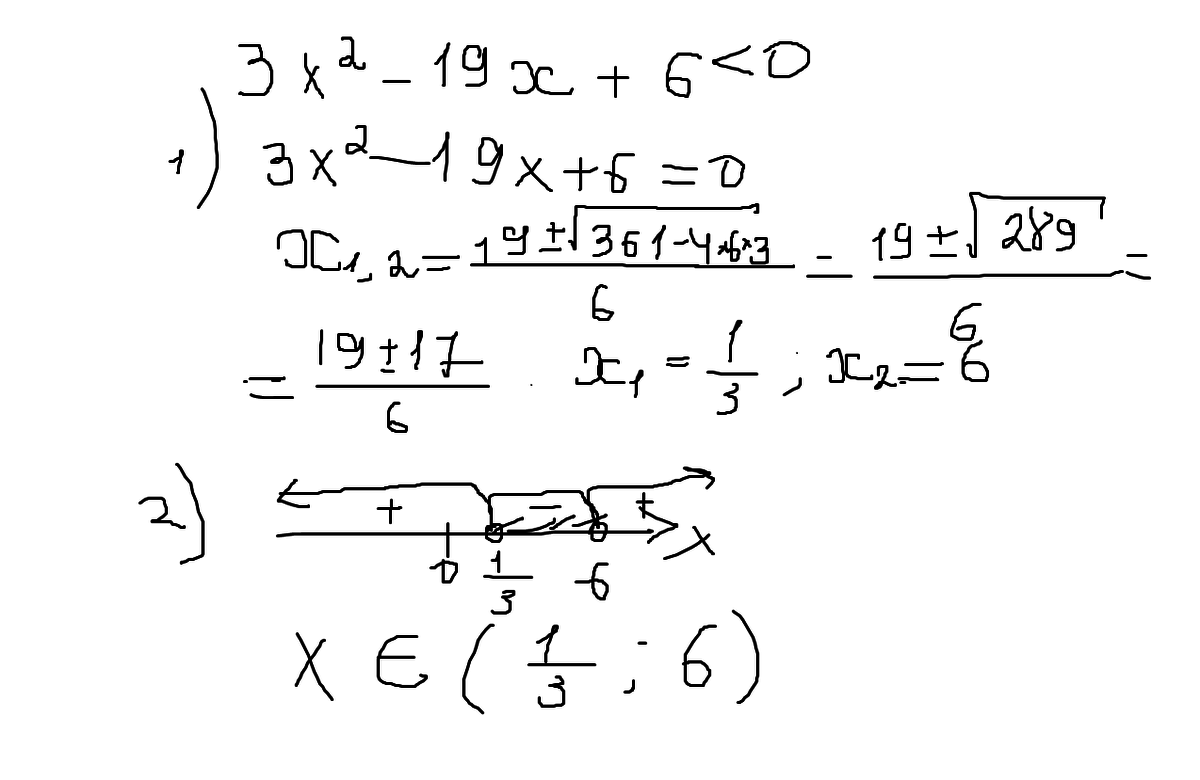 3x² - 19x + 6 < 0
1) 3x² - 19x + 6 = 0
x₁,₂ = (19 ± √(361 - 4*6*3))/6 = (19 ± √289)/6 =
= (19 ± 17)/6 x₁ = 1/3 ; x₂ = 6
2) + - + x
0 1/3 6
x ∈ (1/3 ; 6)